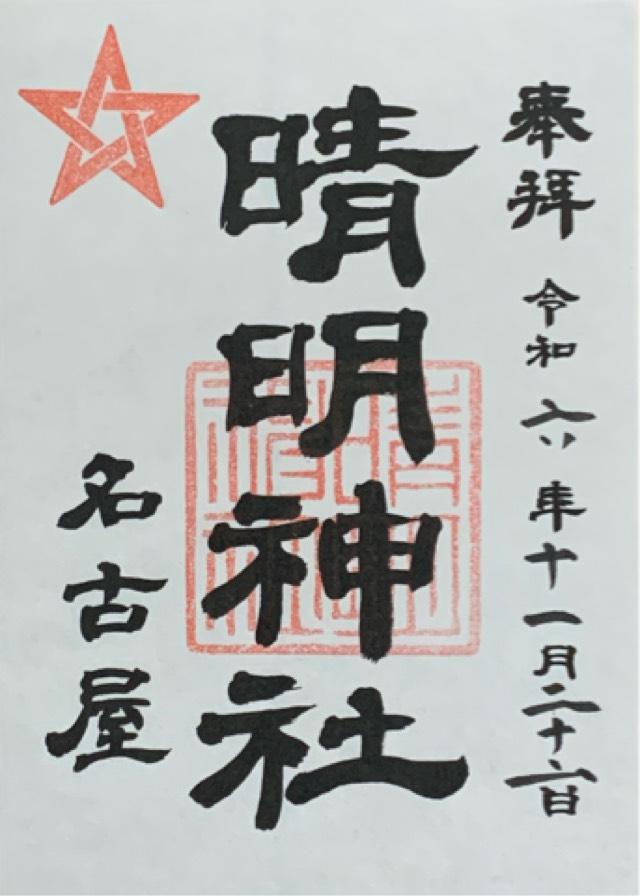 奉拝 令和六年十一月二十六日
晴明神社
名古屋